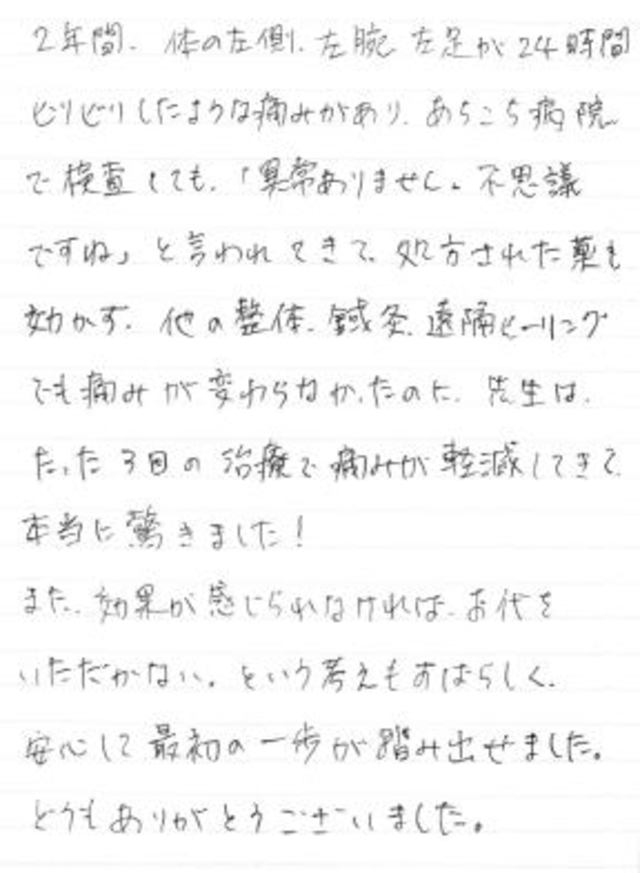 2年間、体の左側、左腕 左足が24時間
ビリビリしたような痛みがあり、あちこち病院
で検査しても、「異常ありません。不思議
ですね」と言われてきて、処方された薬も
効かず、他の整体、鍼灸、遠隔ヒーリング
でも痛みが変わらなかったのに、先生は、
たった3回の治療で痛みが軽減してきて、
本当に驚きました!
また、効果が感じられなければ、お代を
いただかない。という考えもすばらしく、
安心して最初の一歩が踏み出せました。
どうもありがとうございました。